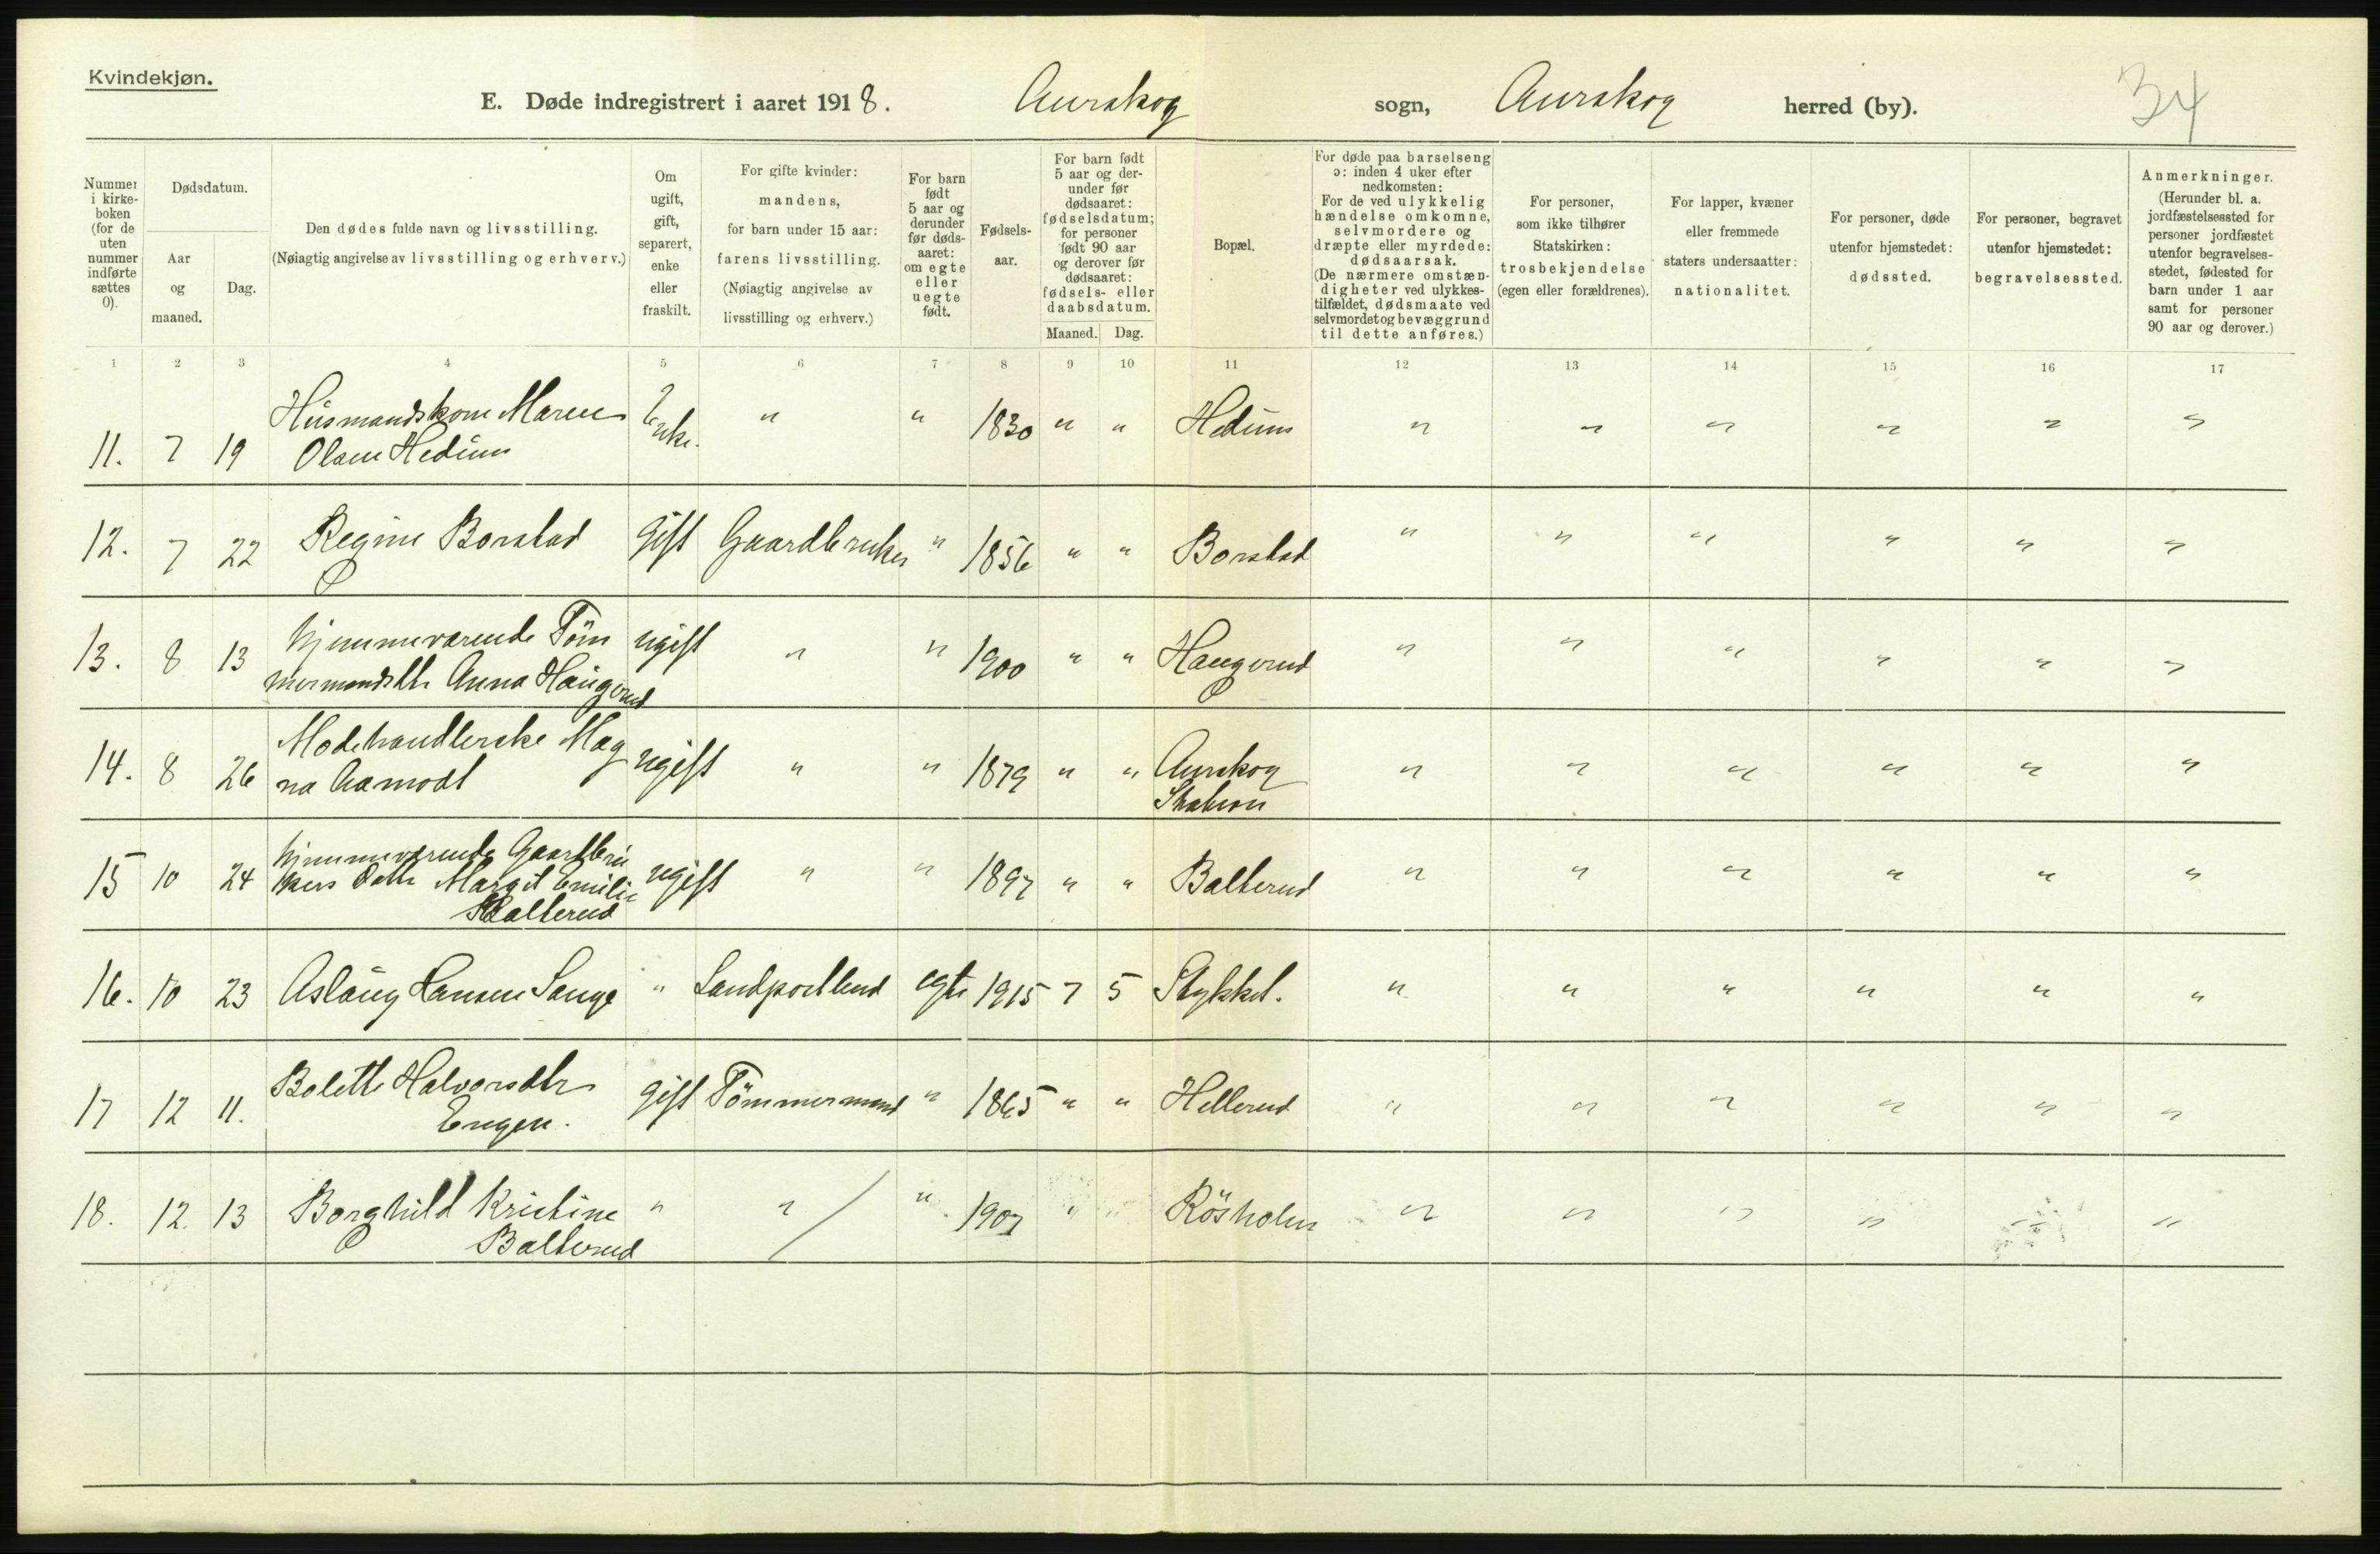 Kvindekjøn.
E. Døde indregistrert i aaret 1918. Aurskog sogn, Aurskog herred (by).
34
Nummer i kirkeboken (for de uten nummer indførte sættes 0).
Dødsdatum.
Aar og maaned.
Dag.
Den dødes fulde navn og livsstilling.
(Nøiagtig angivelse av livsstilling og erhverv.)
Om ugift, gift, separert, enke eller fraskilt.
For gifte kvinder: mandens, for barn under 15 aar: farens livsstilling. (Nøiagtig angivelse av livsstilling og erhverv.)
For barn født 5 aar og derunder før dødsaaret: om egte eller uegte født.
Fødselsaar.
For barn født 5 aar og derunder før dødsaaret: fødselsdatum; for personer født 90 aar og derover før dødsaaret: fødsels- eller daabsdatum.
Maaned. Dag.
Bopæl.
For døde paa barselseng ɔ: inden 4 uker efter nedkomsten: For de ved ulykkelig hændelse omkomne, selvmordere og dræpte eller myrdede: dødsaarsak. (De nærmere omstændigheter ved ulykkestilfældet, dødsmaate ved selvmordet og bevæggrund til dette anføres.)
For personer, som ikke tilhører Statskirken: trosbekjendelse (egen eller forældrenes).
For lapper, kvæner eller fremmede staters undersaatter: nationalitet.
For personer, døde utenfor hjemstedet: dødssted.
For personer, begravet utenfor hjemstedet: begravelsessted.
Anmerkninger. (Herunder bl. a. jordfæstelsessted for personer jordfæstet utenfor begravelsesstedet, fødested for barn under 1 aar samt for personer 90 aar og derover.)
1 2 3 4 5 6 7 8 9 10 11 12 13 14 15 16 17
11. 7 19 Husmandskone Maren Olsen Hedum Enke. " " 1830 " " Hedum " " " " " "
12. 7 22 Regine Borstad gift Gaardbruker " 1856 " " Borstad " " " " " "
13. 8 13 hjemmeværende Tömmermandsdtr Anna Haugerud ugift " " 1900 " " Haugerud " " " " " "
14. 8 26 Modehandlerske Magna Aamodt ugift " " 1879 " " Aurskog Station " " " " " "
15 10 24 hjemmeværende Gaardbrukers Datter Margit Emilie Balterud ugift " " 1897 " " Balterud " " " " " "
16. 10 23 Aslaug Hansen Sange " Landpostbud egte 1915 7 5 Stykket. " " " " " "
17 12 11. Bolette Halvorsdtr Engen. gift Tömmermand " 1865 " " Hellerud " " " " " "
18. 12. 13 Borghild Kristine Balterud " " / " 1907 " " Rösholm " " " " " "